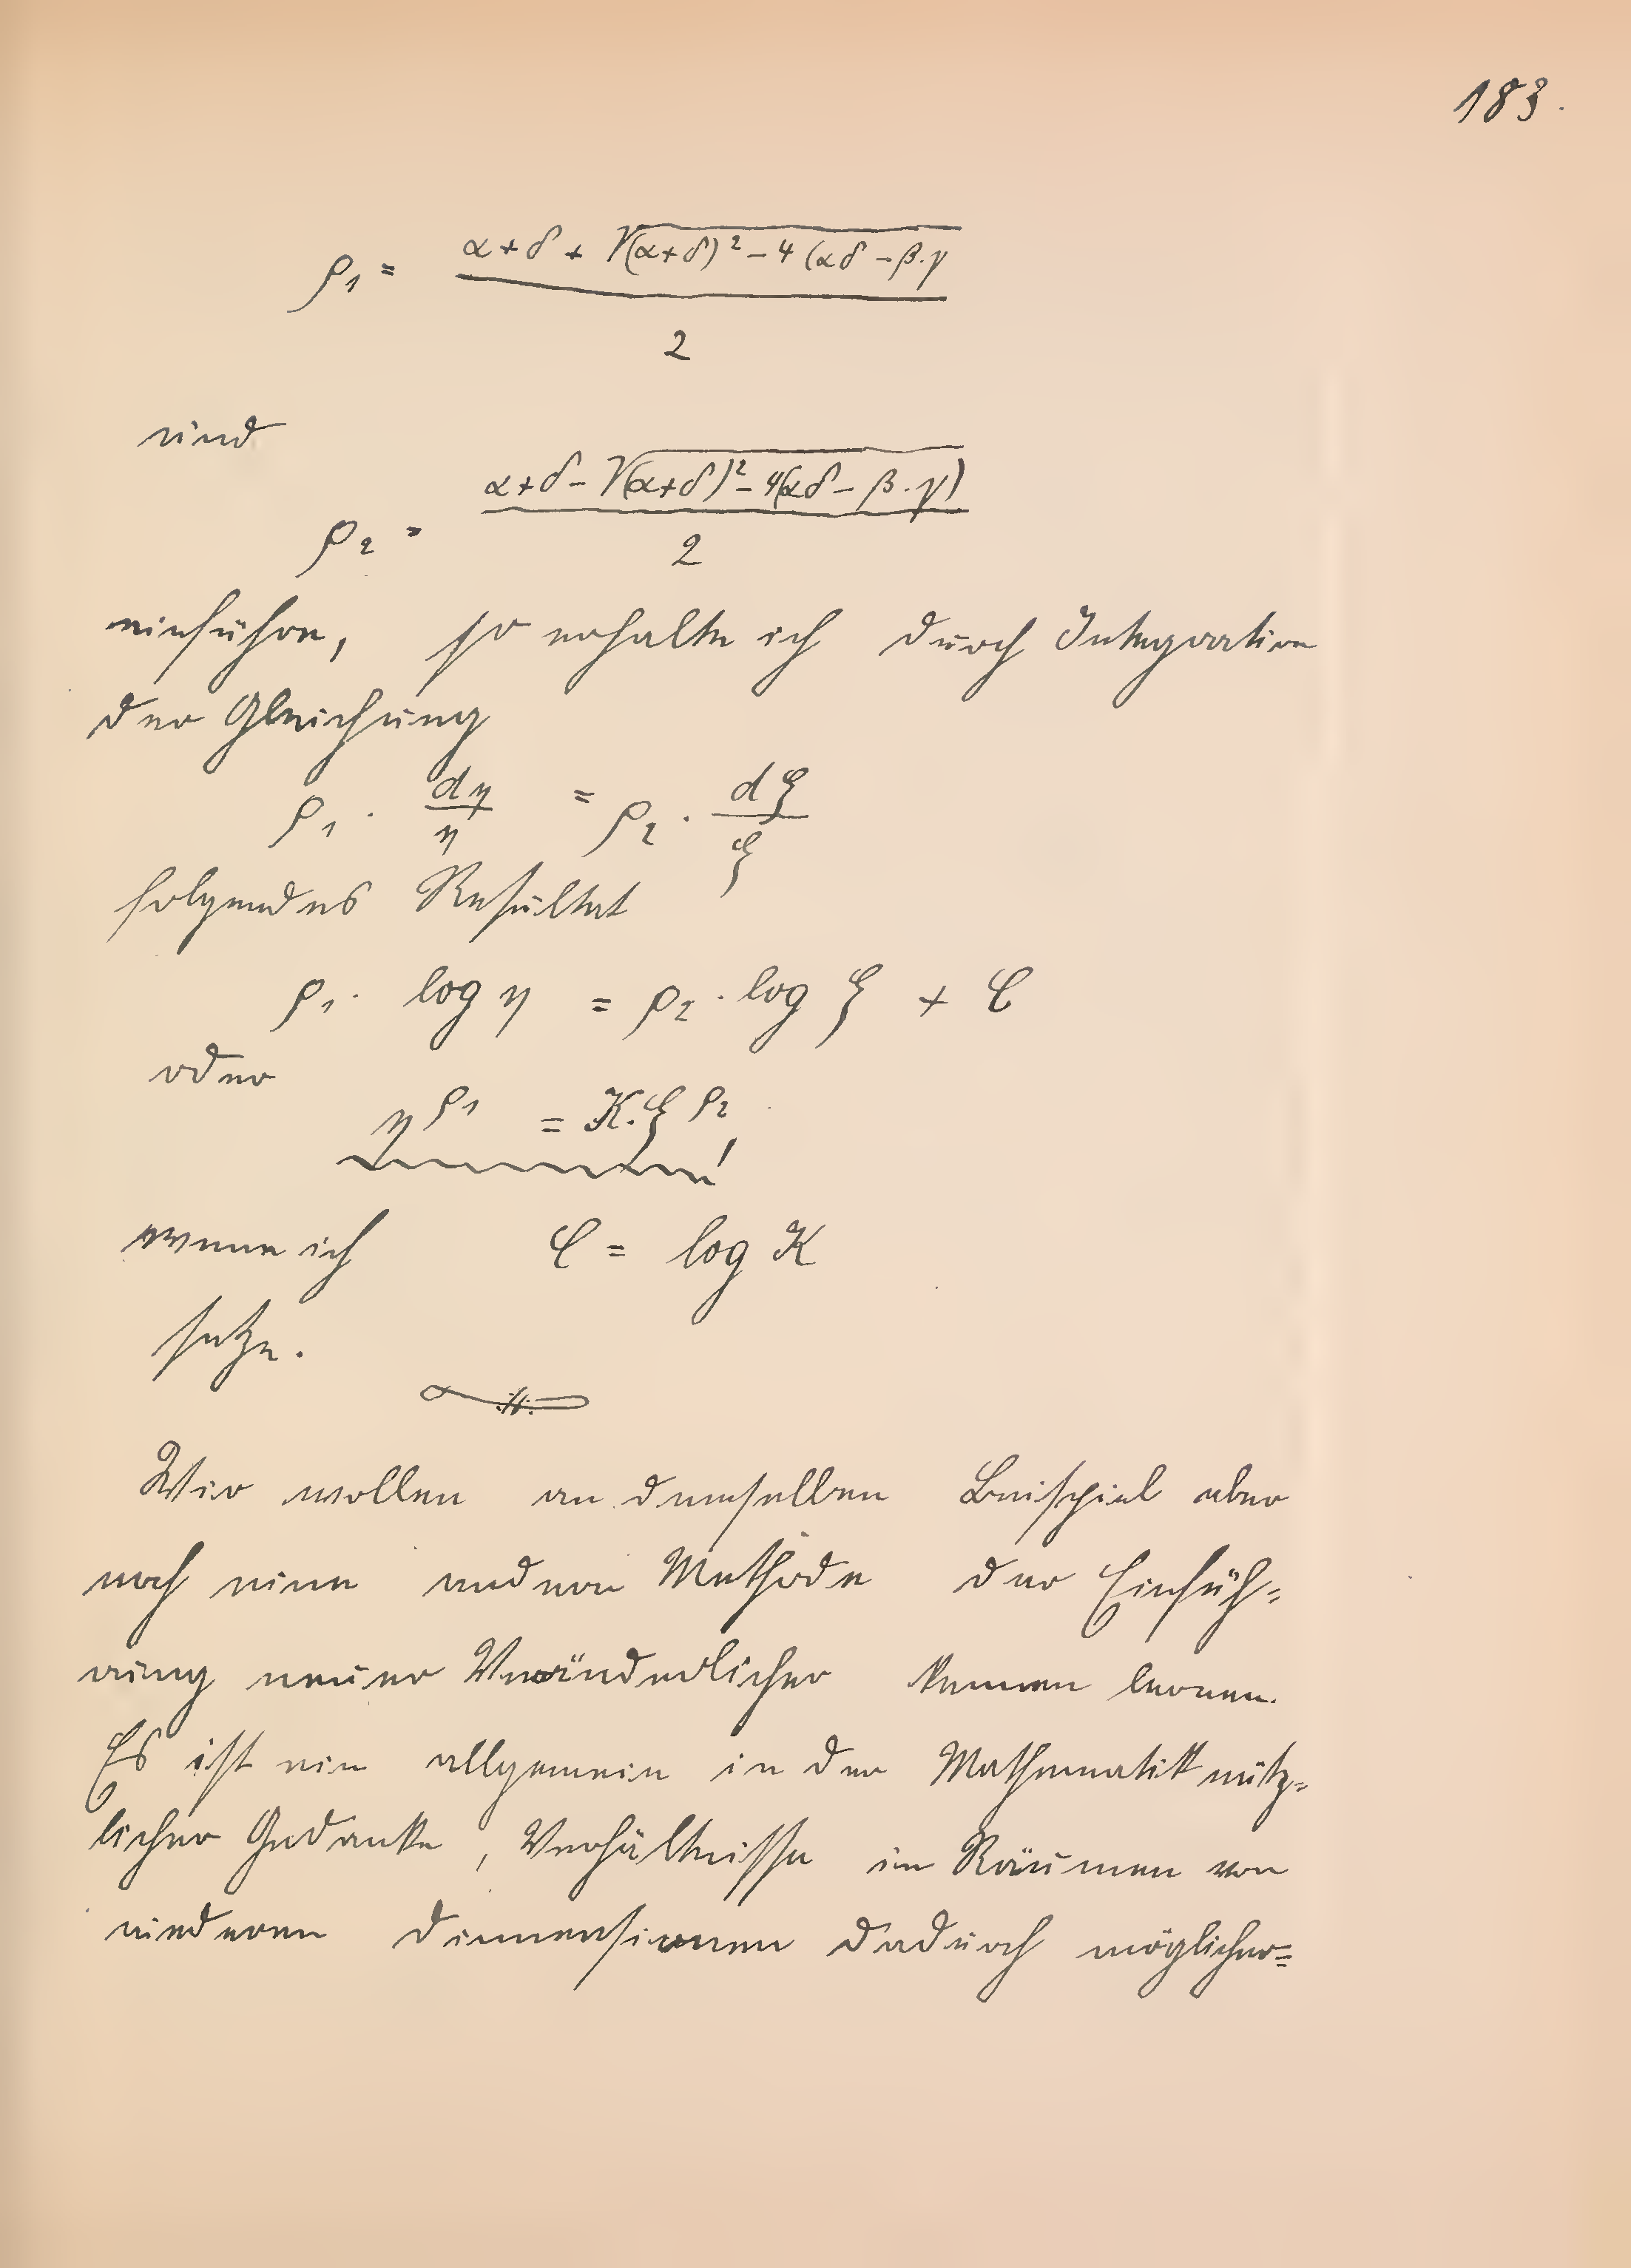 183.
ρ₁ = (α+δ + √((α+δ)² − 4(αδ − β·γ) / 2
und
ρ₂ = (α+δ − √((α+δ)² − 4(αδ − β·γ)) / 2
einführe, so erhalte ich durch Integration
der Gleichung
ρ₁ · dη/η = ρ₂ · dξ/ξ
folgendes Resultat
ρ₁· log η = ρ₂ · log ξ + C
oder
η^ρ₁ = K·ξ^ρ₂!
wenn ich C = log K
setze.
Wir wollen an demselben Beispiel aber
noch eine andere Methode der Einfüh=
rung neuer Veränderlicher kennen lernen.
Es ist ein allgemein in der Mathematik nütz=
licher Gedanke, Verhältnisse in Räumen von
niederen Dimensionen dadurch möglicher=